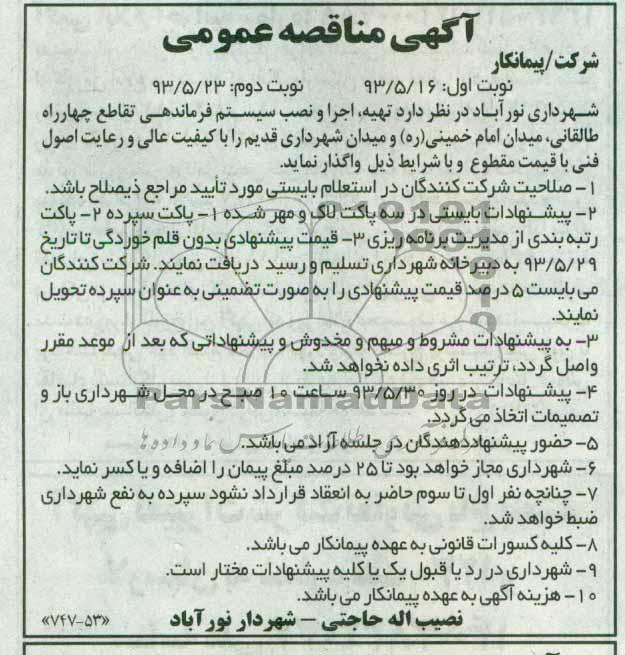 آگهی مناقصه عمومی
شرکت/پیمانکار
نوبت اول: ۹۳/۵/۱۶ نوبت دوم: ۹۳/۵/۲۳
شهرداری نورآباد در نظر دارد تهیه، اجرا و نصب سیستم فرماندهی تقاطع چهارراه
طالقانی، میدان امام خمینی(ره) و میدان شهرداری قدیم را با کیفیت عالی و رعایت اصول
فنی با قیمت مقطوع و با شرایط ذیل واگذار نماید.
۱- صلاحیت شرکت کنندگان در استعلام بایستی مورد تأیید مراجع ذیصلاح باشد.
۲- پیشنهادات بایستی در سه پاکت لاک و مهر شده ۱- پاکت سپرده ۲- پاکت
رتبه بندی از مدیریت برنامه ریزی ۳- قیمت پیشنهادی بدون قلم خوردگی تا تاریخ
۹۳/۵/۲۹ به دبیرخانه شهرداری تسلیم و رسید دریافت نمایند. شرکت کنندگان
می بایست ۵ درصد قیمت پیشنهادی را به صورت تضمینی به عنوان سپرده تحویل
نمایند.
۳- به پیشنهادات مشروط و مبهم و مخدوش و پیشنهاداتی که بعد از موعد مقرر
واصل گردد، ترتیب اثری داده نخواهد شد.
۴- پیشنهادات در روز ۹۳/۵/۳۰ ساعت ۱۰ صبح در محل شهرداری باز و
تصمیمات اتخاذ می گردد.
۵- حضور پیشنهاددهندگان در جلسه آزاد می باشد.
۶- شهرداری مجاز خواهد بود تا ۲۵ درصد مبلغ پیمان را اضافه و یا کسر نماید.
۷- چنانچه نفر اول تا سوم حاضر به انعقاد قرارداد نشود سپرده به نفع شهرداری
ضبط خواهد شد.
۸- کلیه کسورات قانونی به عهده پیمانکار می باشد.
۹- شهرداری در رد یا قبول یک یا کلیه پیشنهادات مختار است.
۱۰- هزینه آگهی به عهده پیمانکار می باشد.
نصیب اله حاجتی – شهردار نورآباد
«۷۴۷-۵۳»
ParsNamadData